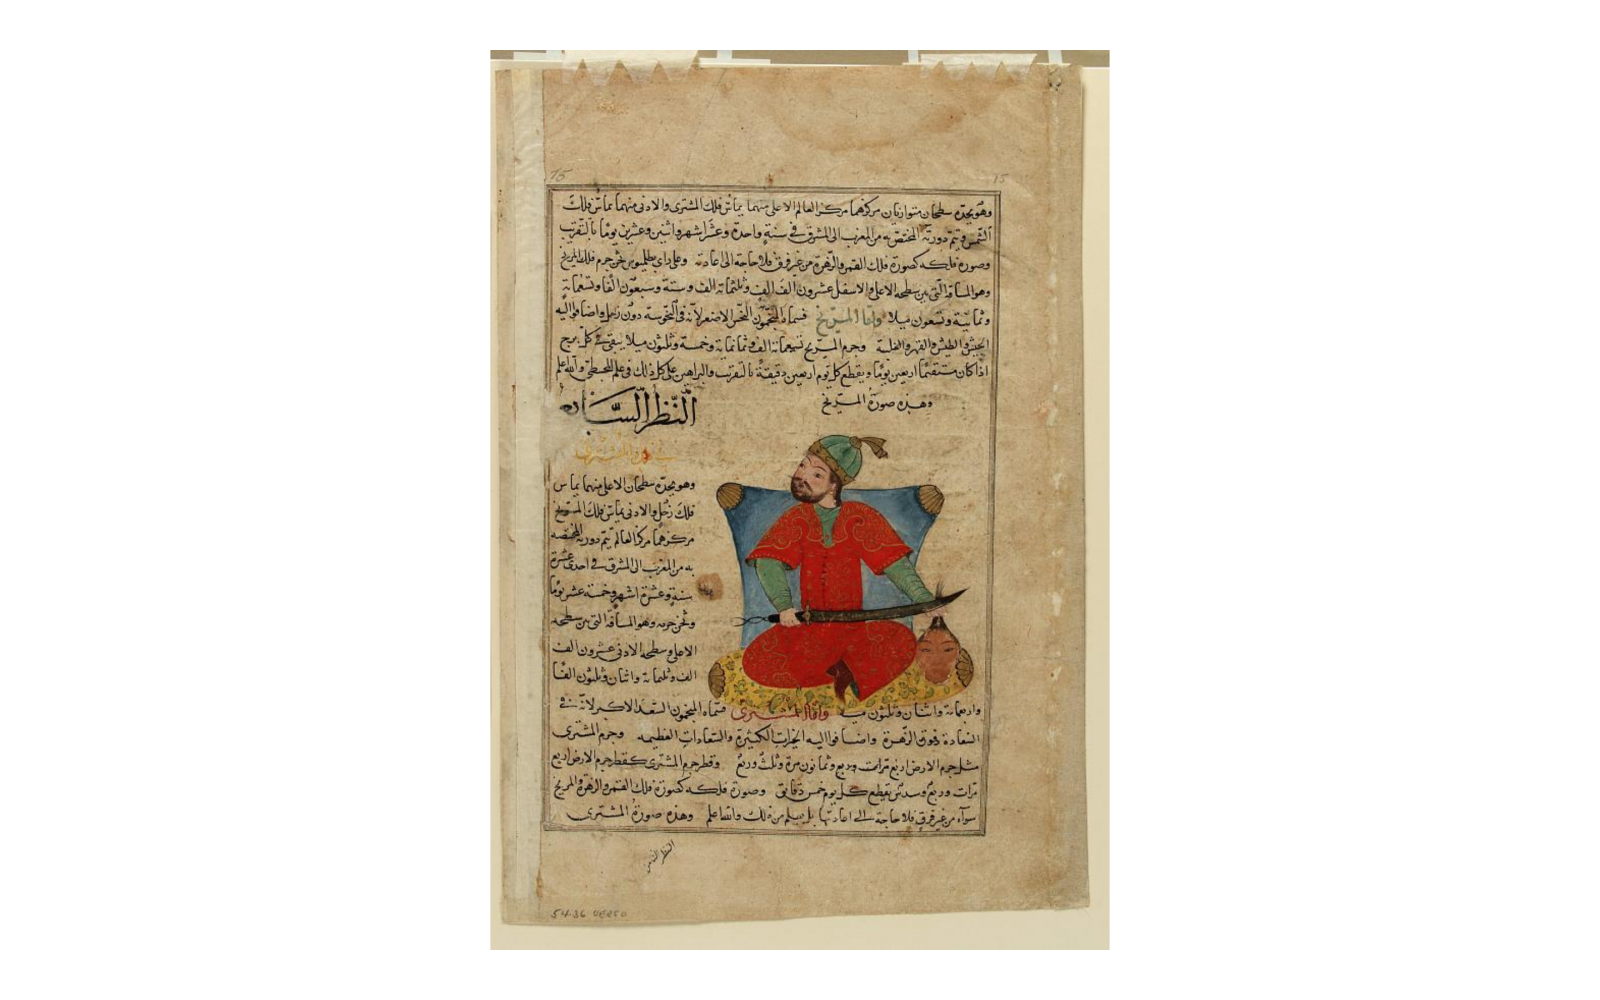 15
15
وهو يحده سطحان متوازيان مركزهما مركز العالم الاعلى منهما يماس فلك المشترى والادنى منهما يماس فلك
الشمس ويتم دورته المختص به من المغرب الى المشرق فى سنة واحدة وعشرا شهر واثنين وعشرين يوما بالتقريب
وصورة فلكه كصورة فلك القمر والزهرة من غير فرق فلا حاجة الى اعادته وعلى راى بطلميوس ثخن جرم فلك المريخ
وهو المسافة التى بين سطحه الاعلى والاسفل عشرون الف الف وثلثمائة الف وستة وسبعون الفا وتسعمائة
وثمانية وتسعون ميلا واما المريخ فسماه المنجمون النحس الاصغر لانه فى النحوسة دون زحل واضافوا اليه
البطش والقهر والغلبة وجرم المريخ تسعمائة الف وثمانمائة وخمسة وثلثون ميلا يبقى فى كل برج
اذا كان مستقيما اربعين يوما ويقطع كل يوم اربعين دقيقة بالتقريب والبراهين على كل ذلك فى علم المجسطى والله اعلم
وهذه صورة المريخ
النظر السابع
فى فلك المشترى
وهو يحده سطحان الاعلى منهما يماس
فلك زحل والادنى يماس فلك المريخ
مركزهما مركز العالم يتم دورته المختصه
به من المغرب الى المشرق فى احدى عشرة
سنة وعشرة اشهر وخمسه عشر يوما
وثخن جرمه وهو المسافة التى بين سطحه
الاعلى وسطحه الادنى عشرون الف
الف وثلثمائة واثنان وثلثون الفا
واربعمائة واثنان وثلثون ميلا واما المشترى فسماه المنجمون السعد الاكبر لانه فى
السعادة فوق الزهرة واضافوا اليه الخيرات الكثيرة والسعادات العظيمه وجرم المشترى
مثل جرم الارض اربع مرات وربع وثمانون مرة وثلث وربع وقطر جرم المشترى كقطر جرم الارض اربع
مرات وربع وسدس يقطع كل يوم خمس دقايق وصورة فلكه كصورة فلك القمر والزهرة والمريخ
سوآء من غير فرق فلا حاجة الى اعادتها بل يعلم من ذلك والله اعلم وهذه صورة المشترى
النظر الثامن
54.36 VERSO